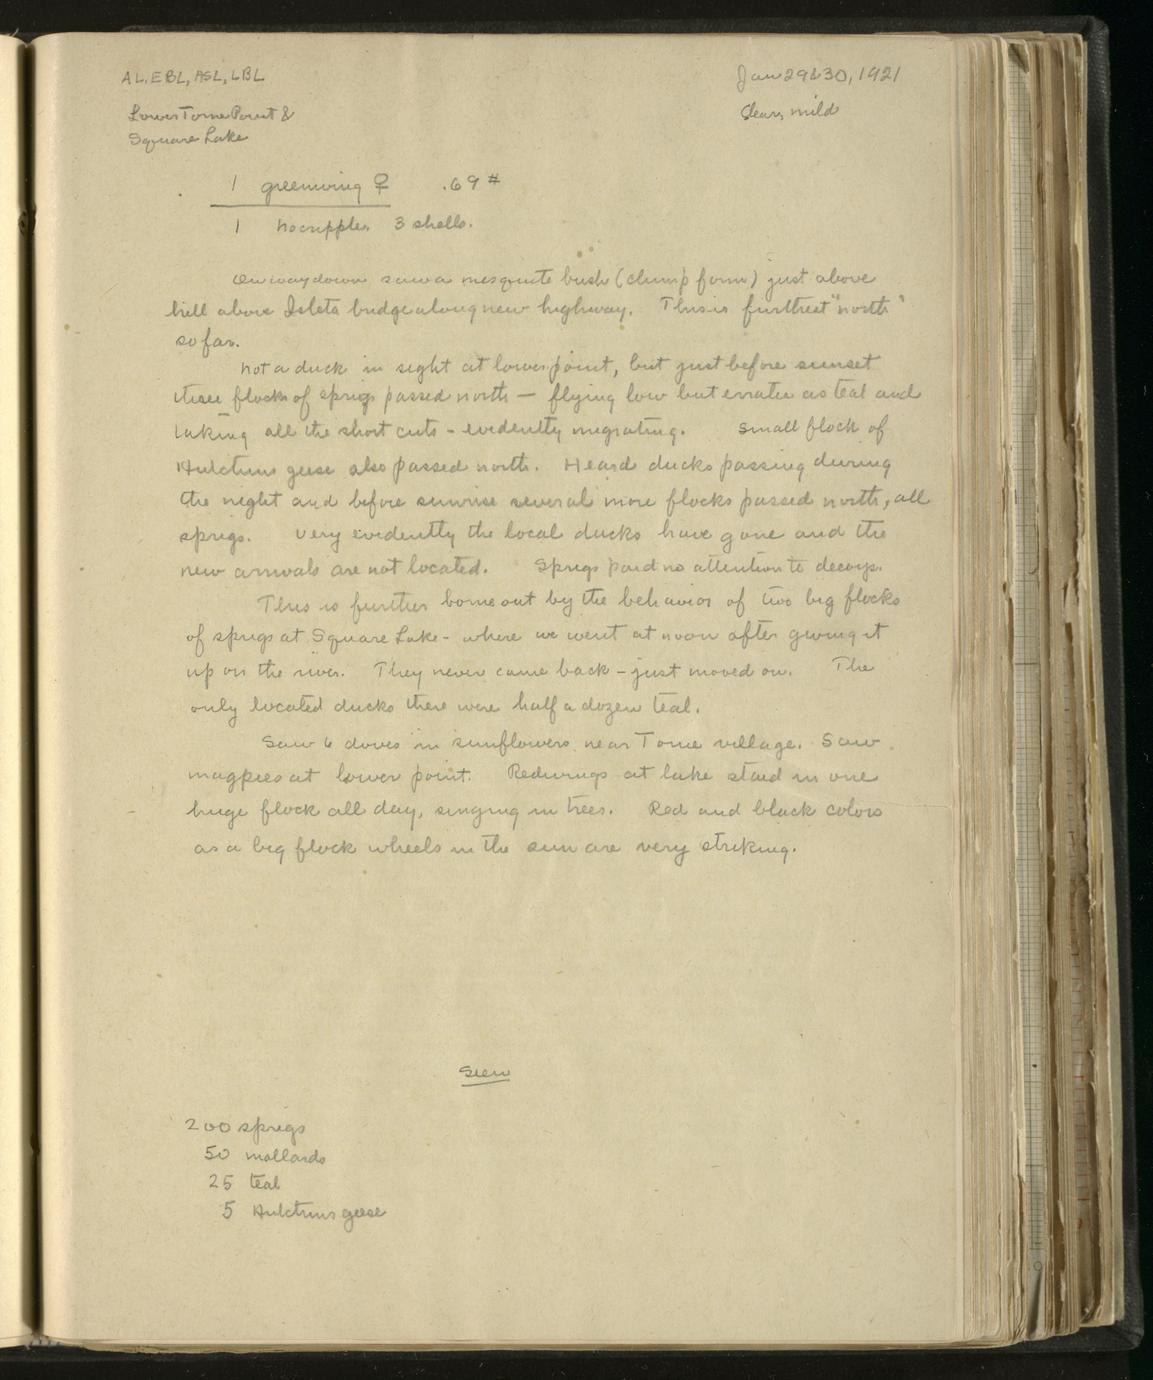 AL, EBL, ASL, LBL
Jan 29 & 30, 1921
Lower Tome Point &
Square Lake
Clear, mild
1 greenwing ♀ .69 #
1 no cripples 3 shells.
On way down saw a mesquite bush (clump form) just above
hill above Isleta bridge along new highway. This is furthest "north"
so far.
Not a duck in sight at lower point, but just before sunset
three flocks of sprigs passed north — flying low but erratic as teal and
taking all the short cuts - evidently migrating. Small flock of
Hutchins geese also passed north. Heard ducks passing during
the night and before sunrise several more flocks passed north, all
sprigs. Very evidently the local ducks have gone and the
new arrivals are not located. Sprigs paid no attention to decoys.
This is further borne out by the behavior of two big flocks
of sprigs at Square Lake - where we went at noon after giving it
up on the river. They never came back - just moved on. The
only located ducks there were half a dozen teal.
Saw 6 doves in sunflowers near Tome village. Saw
magpies at lower point. Redwings at lake staid in one
huge flock all day, singing in trees. Red and black colors
as a big flock wheels in the sun are very striking.
Seen
200 sprigs
50 mallards
25 teal
5 Hutchins geese